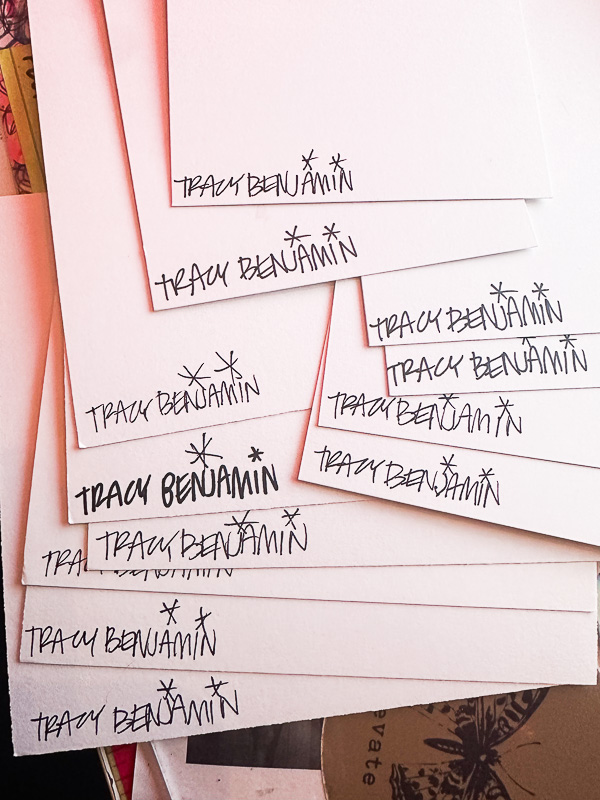 TRACY BENJAMIN
TRACY BENJAMIN
TRACY BENJAMIN
TRACY BENJAMIN
TRACY BENJAMIN
TRACY BENJAMIN
TRACY BENJAMIN
TRACY BENJAMIN
TRACY BENJAMIN
TRA
TRACY BENJAMIN
TRACY BENJAMIN
evate